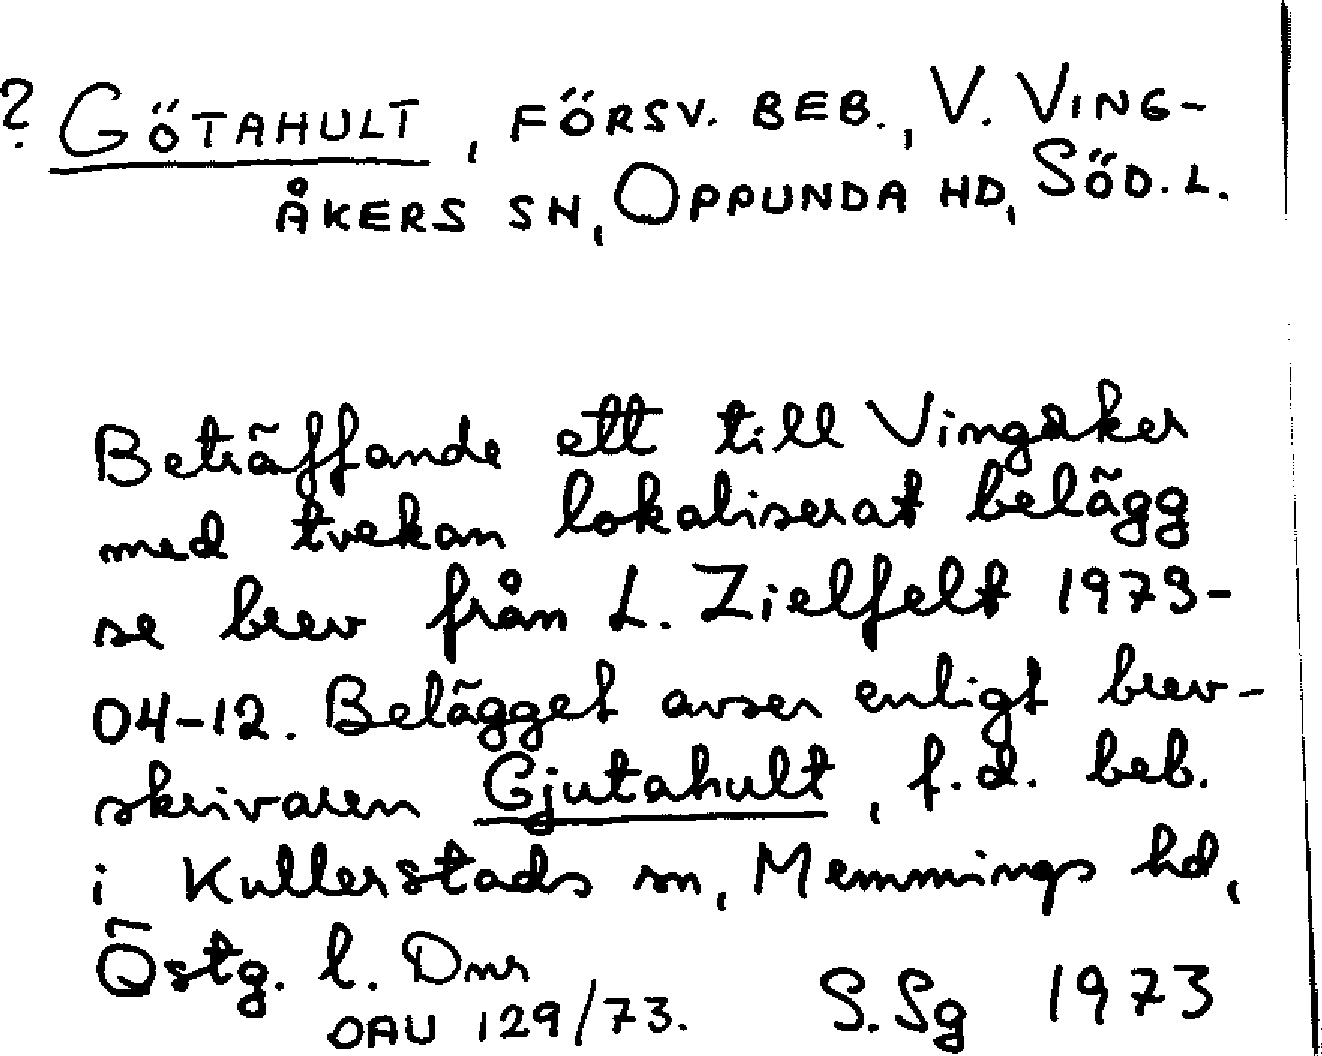 ? GÖTAHULT, FÖRSV. BEB., V. VING-
ÅKERS SN, OPPUNDA HD, SÖD. L.
Beträffande ett till Vingåker
med tvekan lokaliserat belägg
se brev från L. Zielfelt 1973-
04-12. Belägget avser enligt brev-
skrivaren Gjutahult, f.d. beb.
i Kullerstads sn, Memmings hd,
Östg. l. Dnr
OAU 129/73. S.Sg 1973